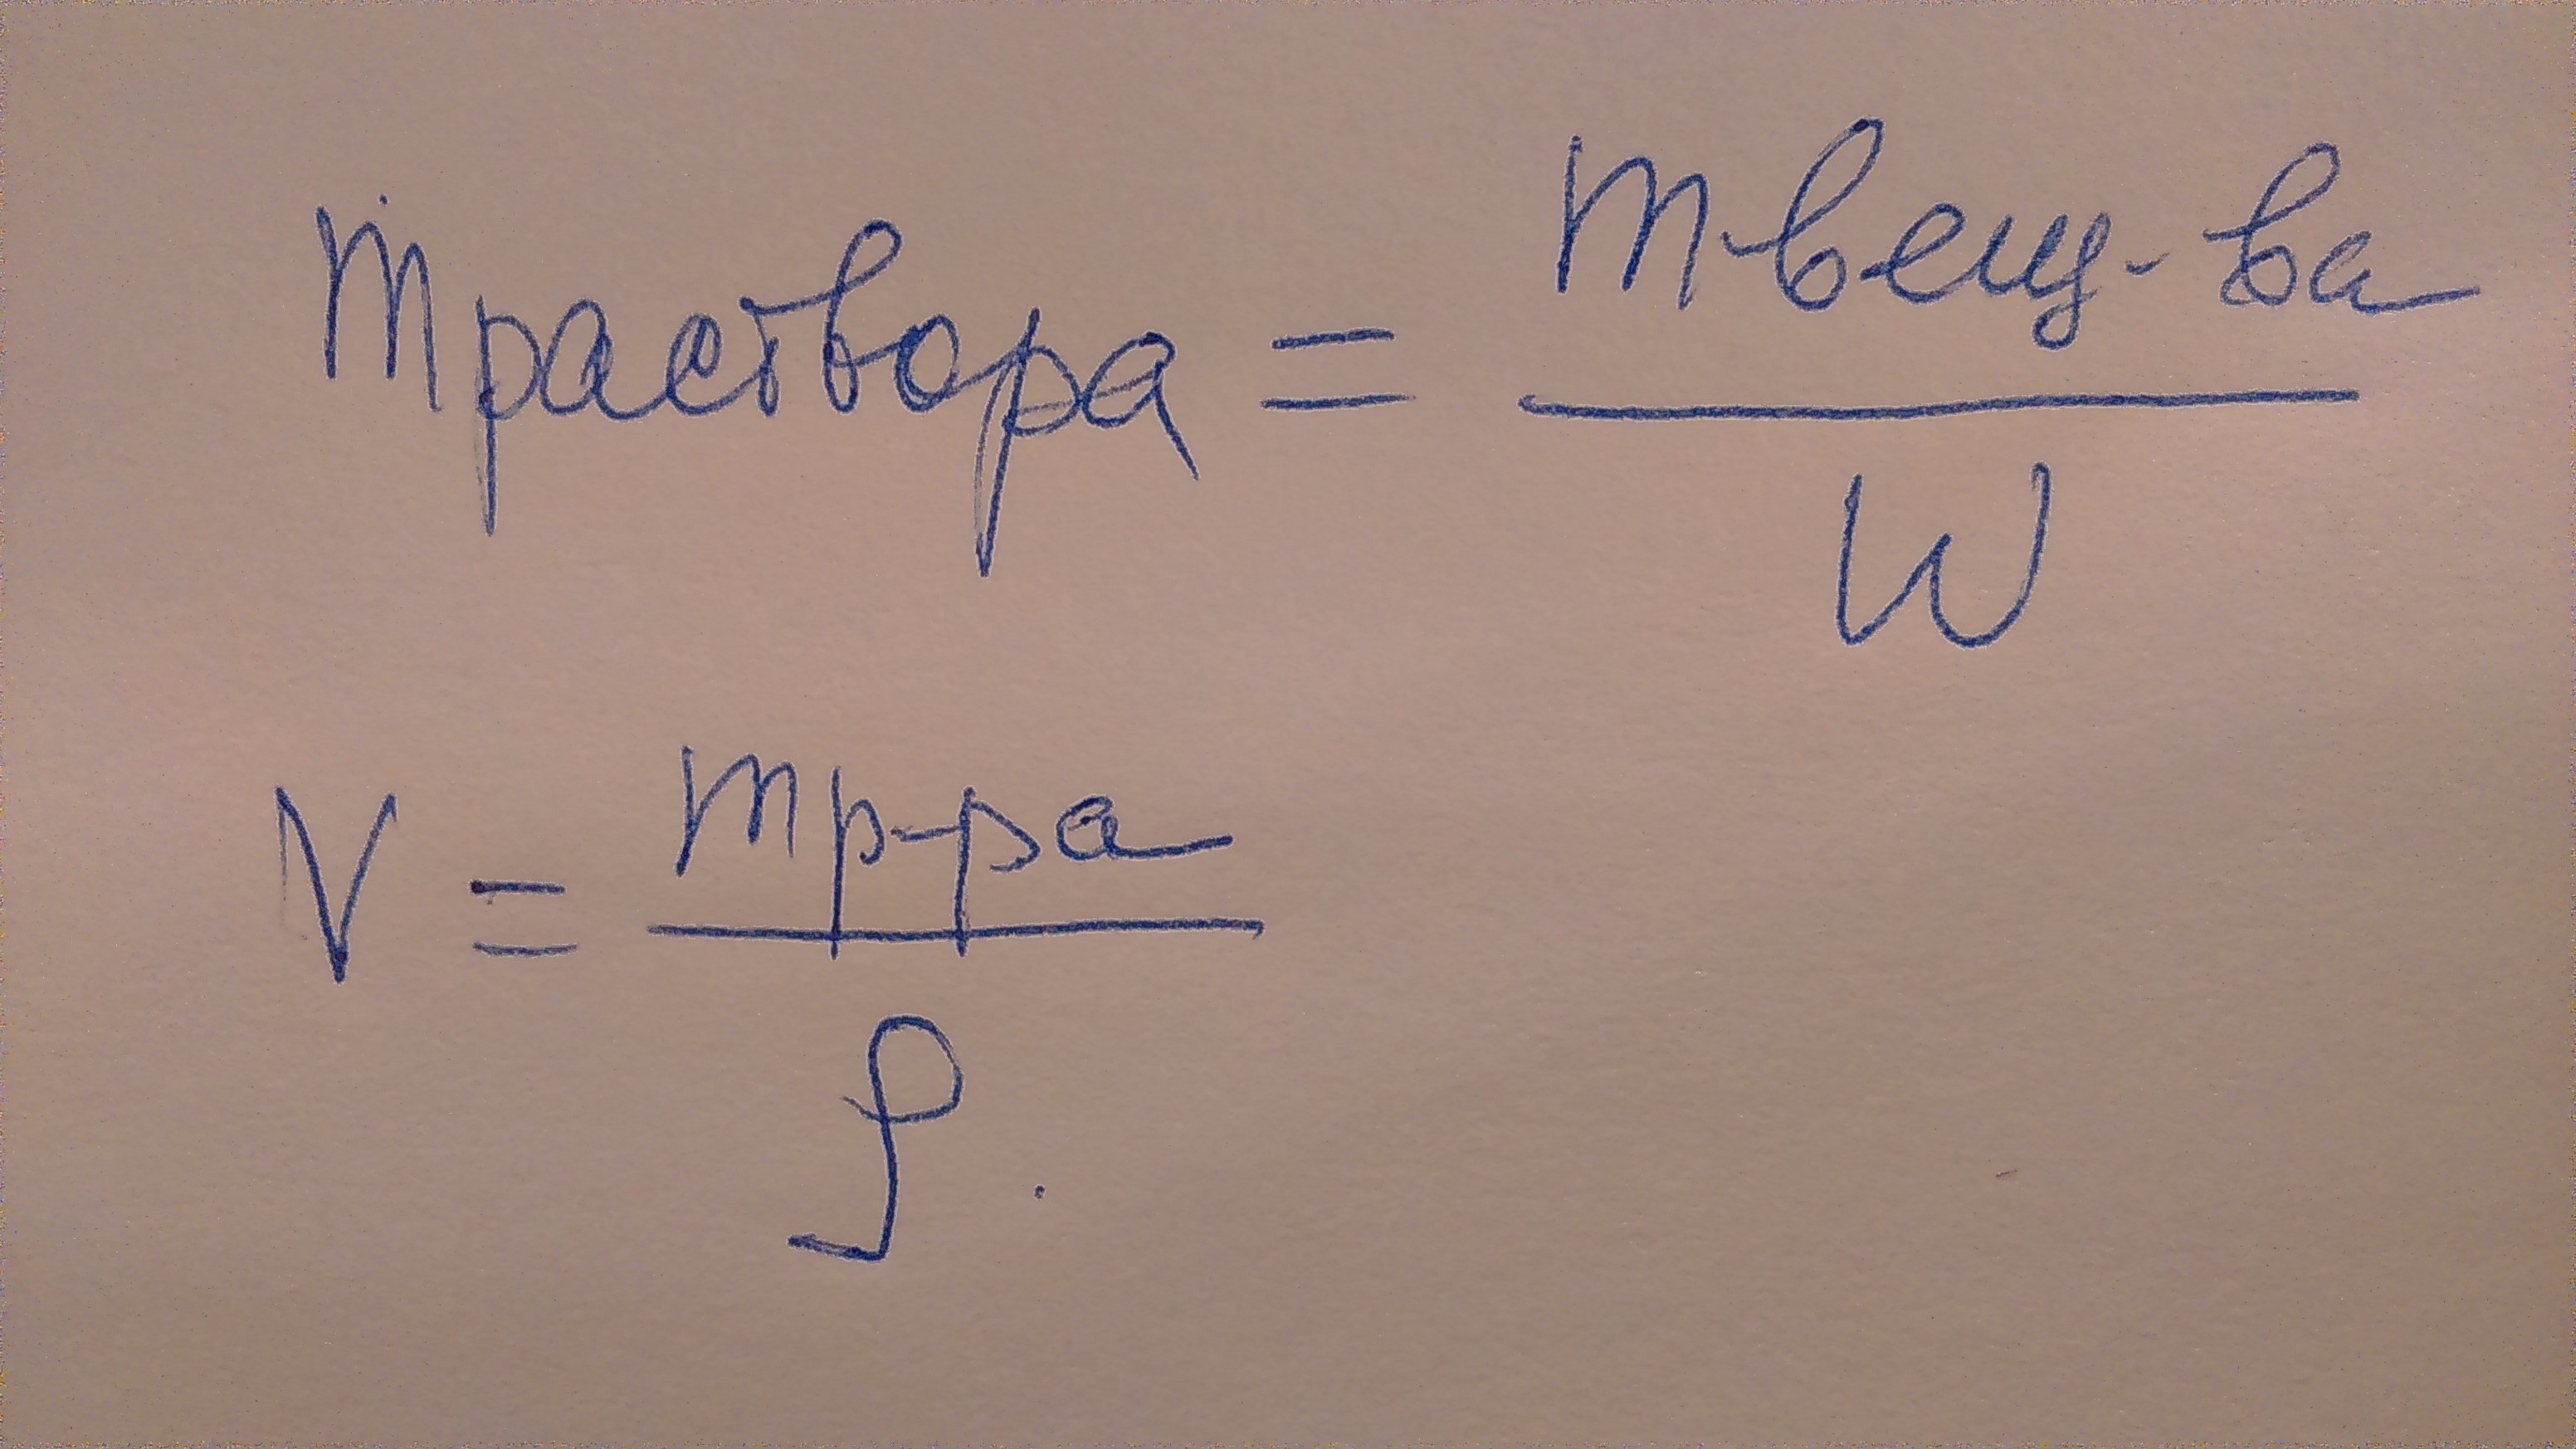 mраствора = m-вещ-ва / W
V = mр-ра / ρ